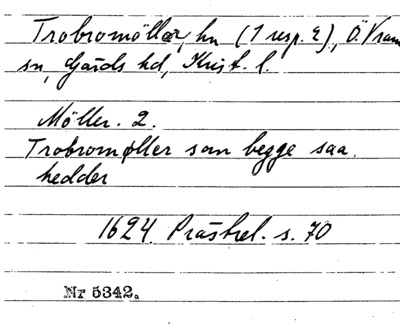 Trobromöllor, hn (1 resp. 2), Ö. Vram
sn, Gärds hd, Krist. l.
Möller. 2.
Trobromøller som begge saa
hedder
1624. Prästrel. s. 70
Nr 5342.